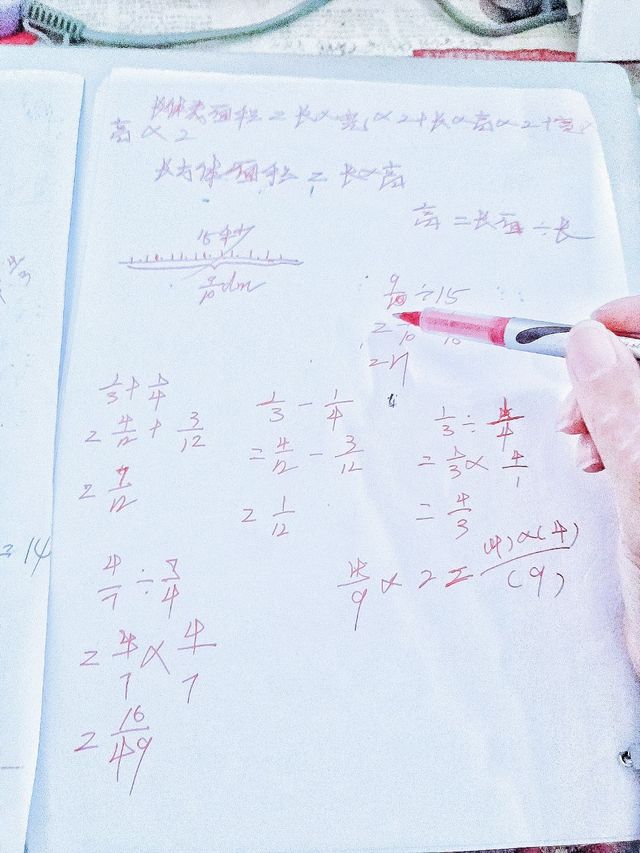 长体表面积=长×宽×2+长×高×2+宽×
高×2
长方体面积=长×高
高=长面÷长
15
9/10 dm
9/10÷15
1/3+1/4
=4/12+3/12
=7/12
1/3-1/4
=4/12-3/12
=1/12
1/3÷1/4
=1/3×4/1
=4/3
4/7÷7/4
=4/7×4/7
=16/49
4/9×2=(4)×(4)/(9)
=14